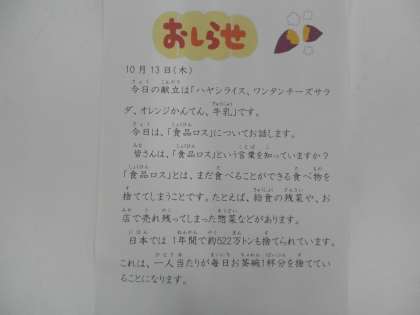 おしらせ
10月13日(木)
今日の献立は「ハヤシライス、ワンタンチーズサラ
ダ、オレンジかんてん、牛乳」です。
今日は、「食品ロス」についてお話します。
皆さんは、「食品ロス」という言葉を知っていますか?
「食品ロス」とは、まだ食べることができる食べ物を
捨ててしまうことです。たとえば、給食の残菜や、お
店で売れ残ってしまった惣菜などがあります。
日本では1年間で約522万トンも捨てられています。
これは、一人当たりが毎日お茶碗1杯分を捨ててい
ることになります。